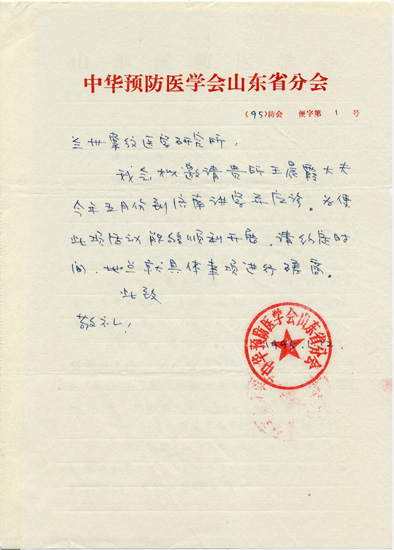 中华预防医学会山东省分会
(95)防会 便字第 1 号
兰州掌纹医学研究所,
我会拟邀请贵所王晨霞大夫
今年五月份到济南讲学并应诊。为使
此项活动能够顺利开展,请约定时
间、地点就具体事项进行磋商。
此致
敬礼!
中华预防医学会山东省分会